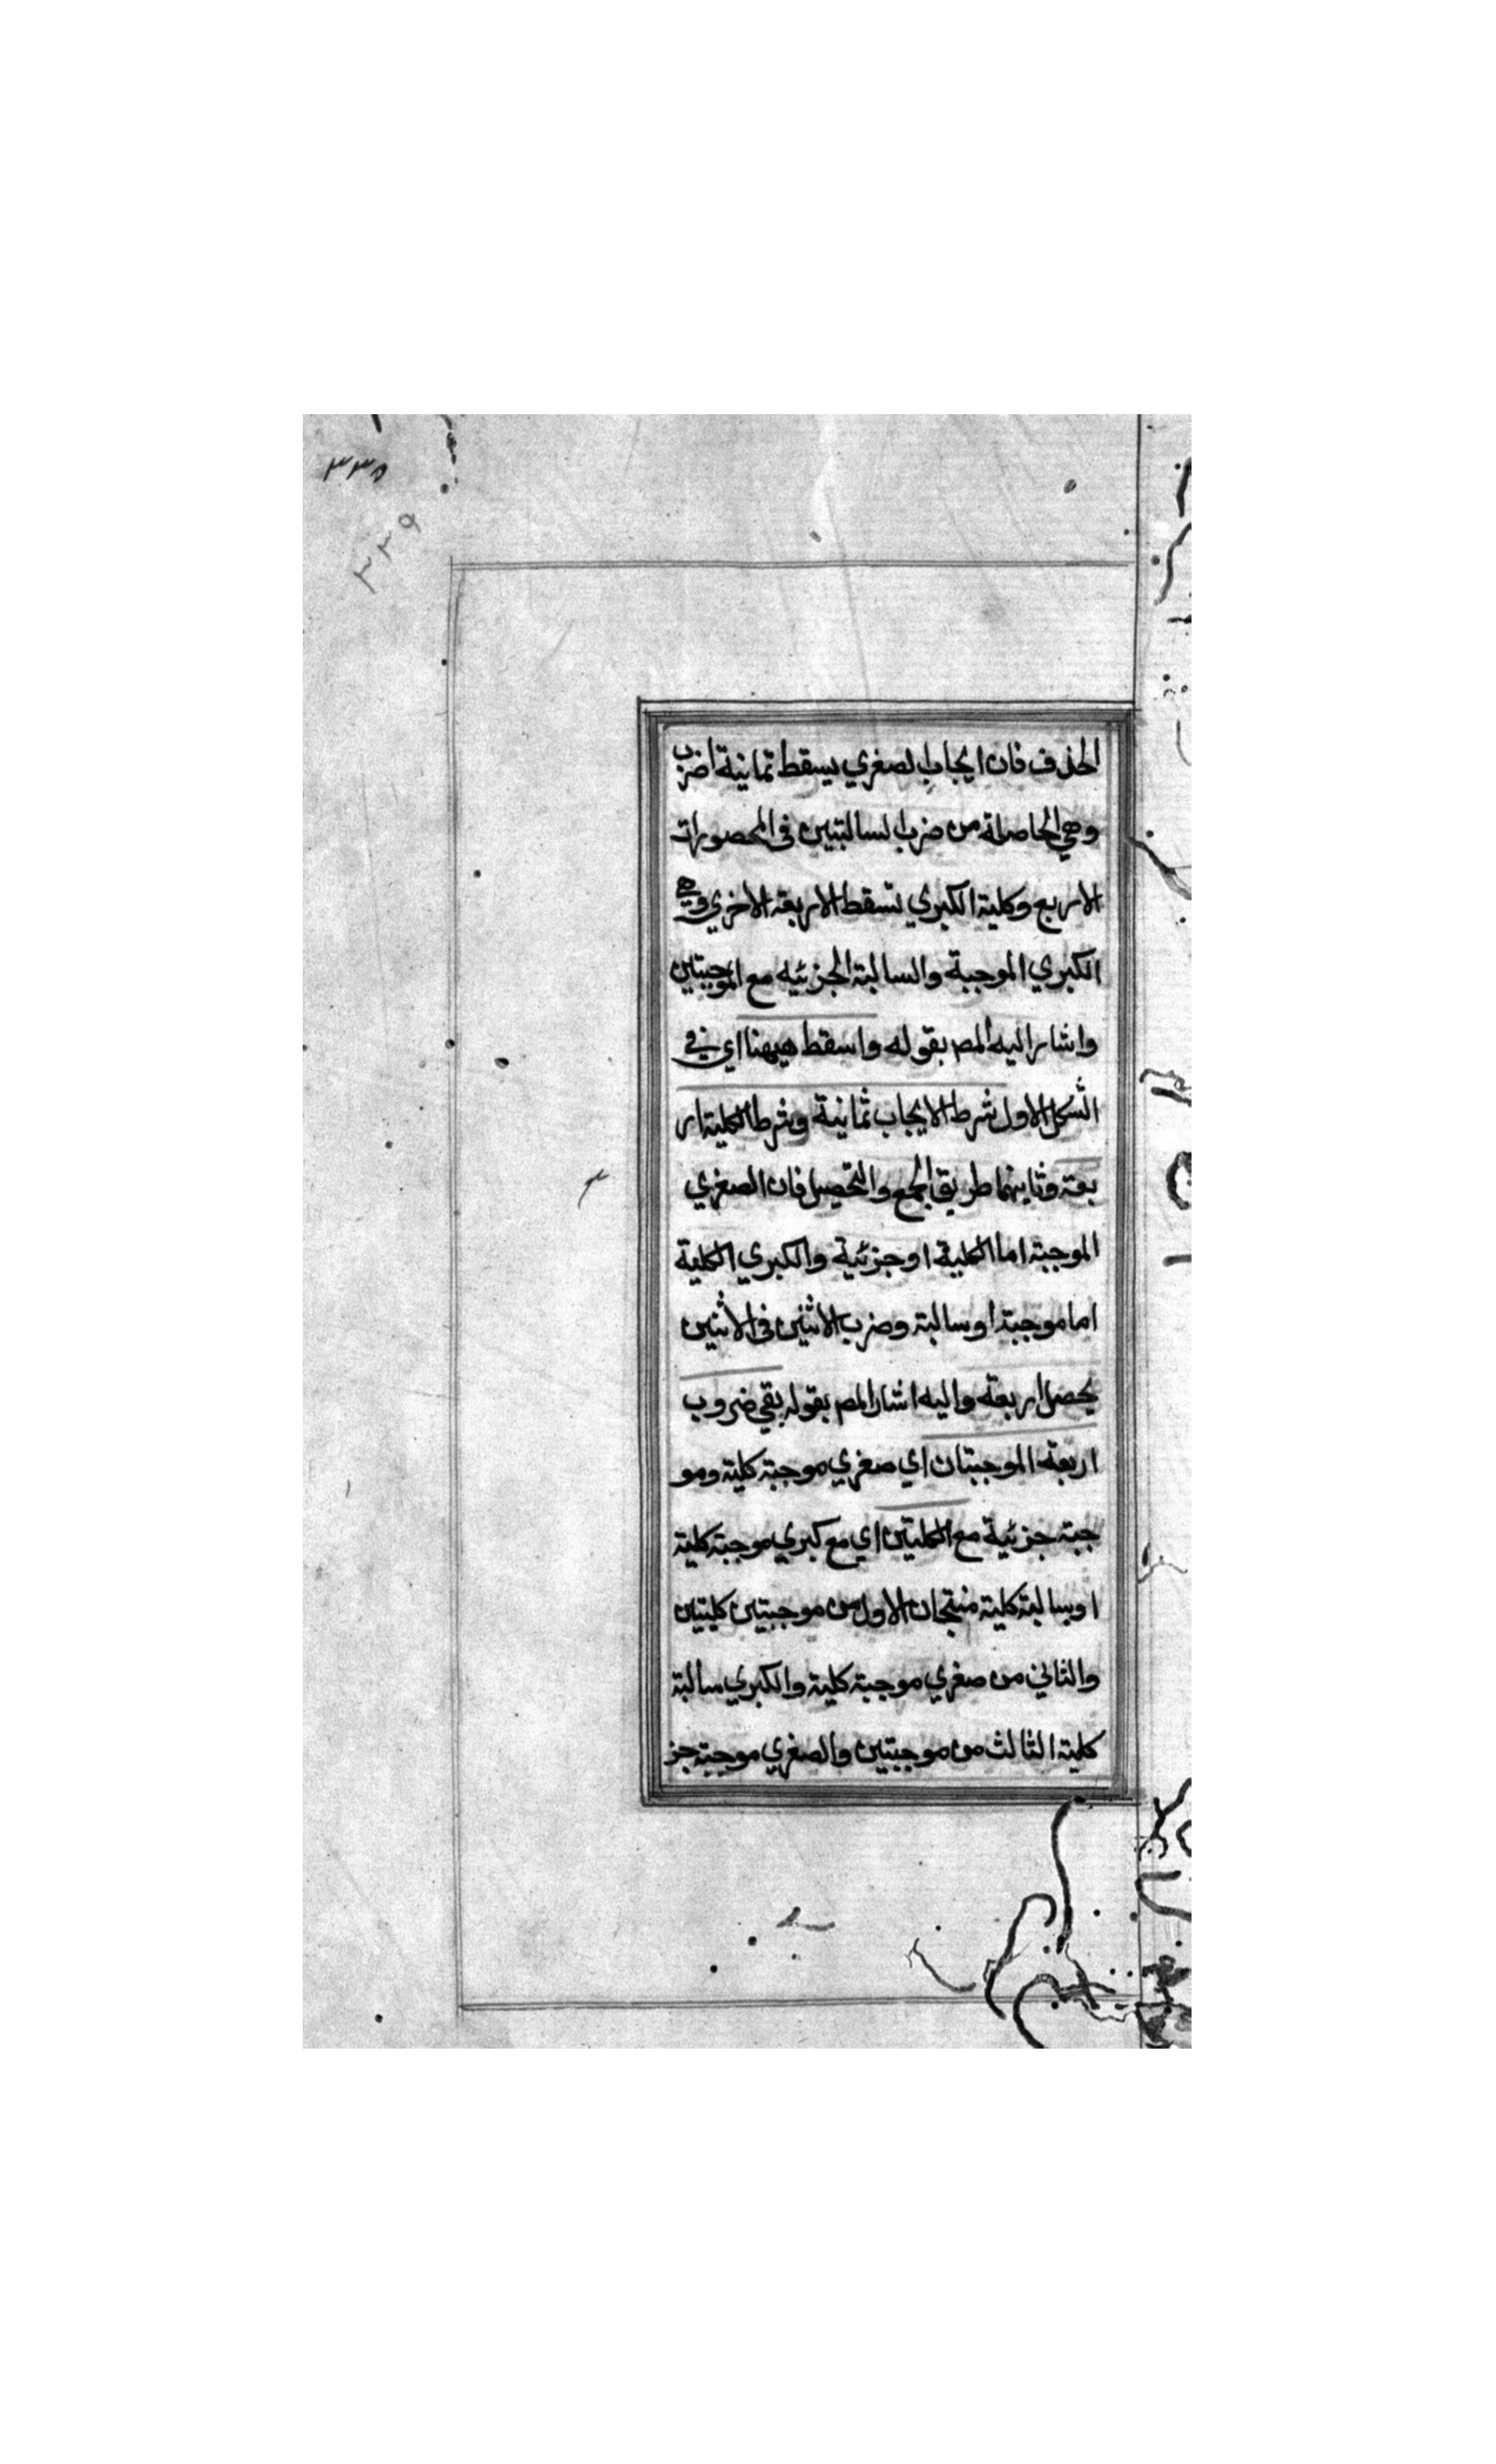 ٣٣٥
٣٣٩
الحذف فان ايجاب الصغري يسقط ثمانية اضرب
وهي الحاصلة من ضرب السالبتين فى المحصورات
الاربع وكلية الكبري تسقط الاربعة الاخري وهي
الكبري الموجبة والسالبة الجزئيه مع الموجبتين
واشار اليه المص بقوله واسقط هيهنا اي في
الشكل الاول شرط الايجاب ثمانية وشرط الكلية ار
بعة وثانيهما طريق الجمع والتحصيل فان الصغري
الموجبة اما الكلية او جزئية والكبري الكلية
اما موجبة او سالبة وضرب الاثنين فى الاثنين
يحصل اربعة واليه اشار المص بقوله بقي ضروب
اربعة الموجبتان اي صغري موجبة كلية ومو
جبة جزئية مع الكليتين اي مع كبري موجبة كلية
او سالبة كلية منتجان الاول من موجبتين كليتين
والثاني من صغري موجبة كلية والكبري سالبة
كلية الثالث من موجبتين والصغري موجبة جز